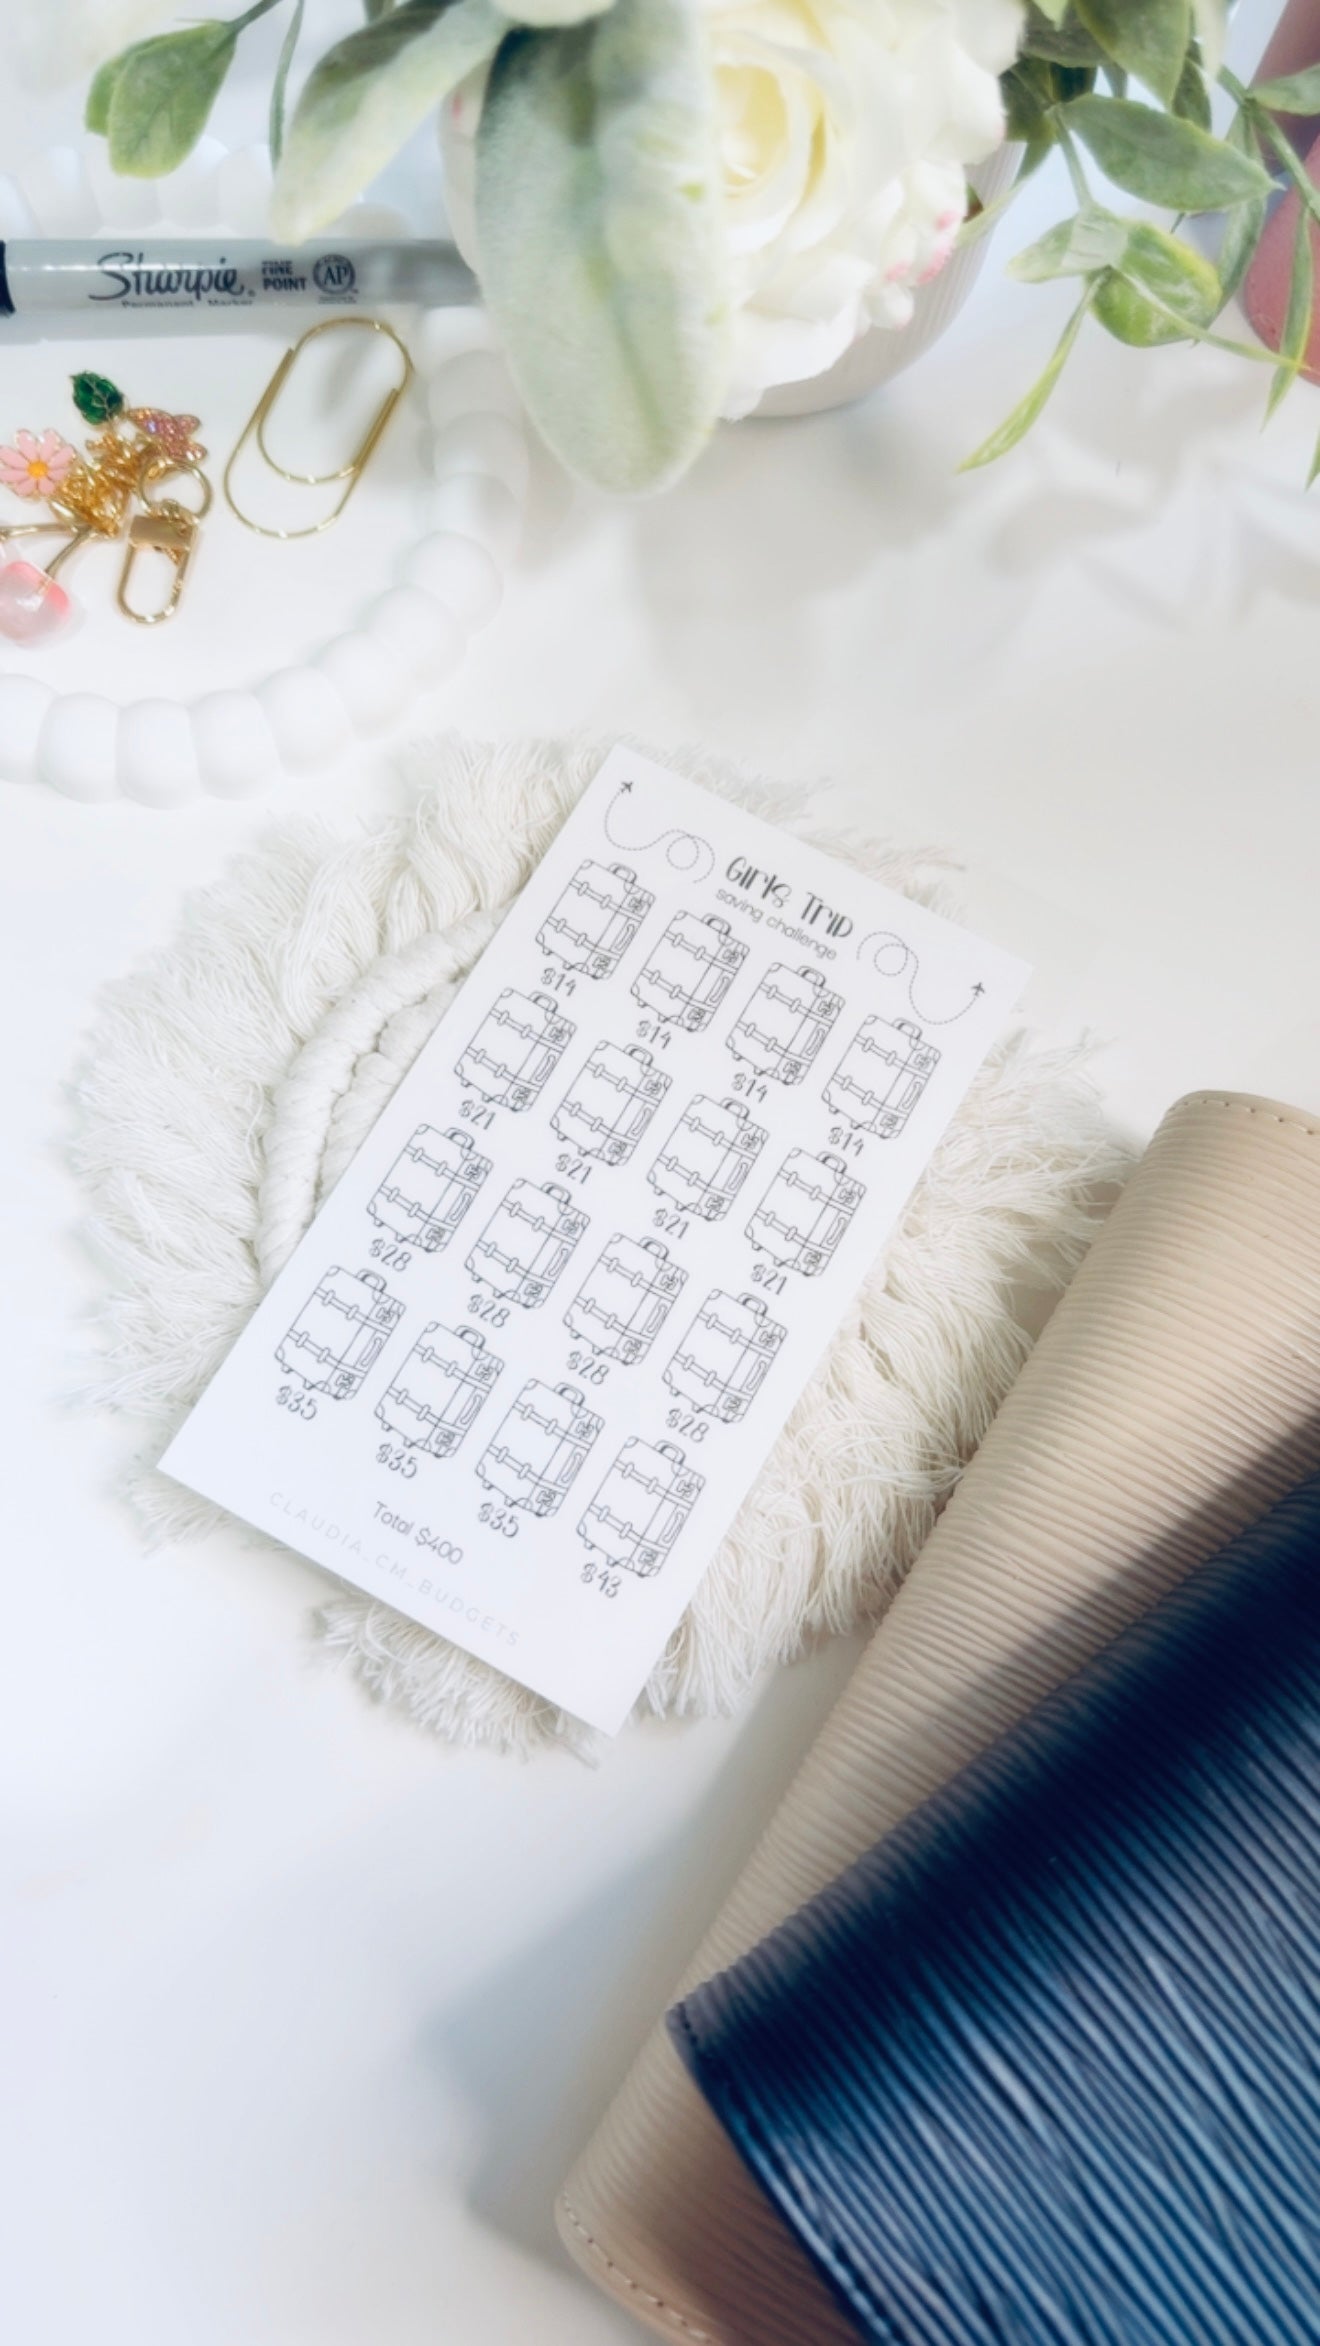 Sharpie®
FINE
POINT
AP
Permanent Marker
Girls Trip
saving challenge
$14 $14 $14 $14
$21 $21 $21 $21
$28 $28 $28 $28
$35 $35 $35 $43
Total $400
CLAUDIA_CM_BUDGETS